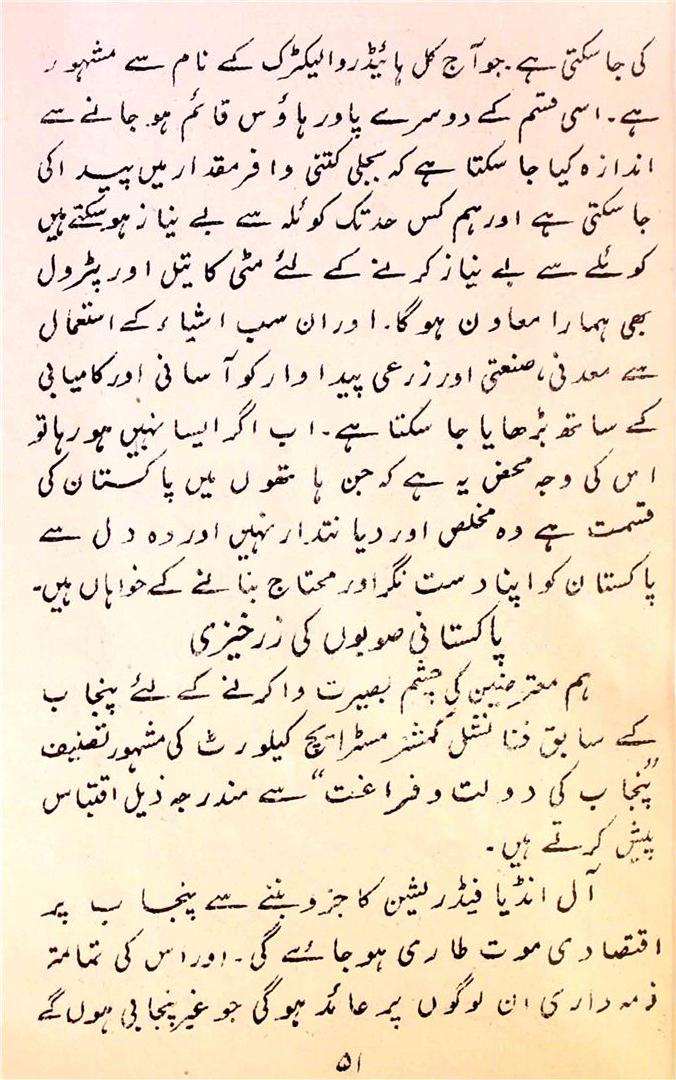 کی جا سکتی ہے۔ جو آج کل ہائیڈرو الیکٹرک کے نام سے مشہور
ہے۔ اسی قسم کے دوسرے پاور ہاؤس قائم ہو جانے سے
اندازہ کیا جا سکتا ہے کہ بجلی کتنی وافر مقدار میں پیدا کی
جا سکتی ہے اور ہم کس حد تک کوئلہ سے بے نیاز ہو سکتے ہیں
کوئلے سے بے نیاز کرنے کے لئے مٹی کا تیل اور پٹرول
بھی ہمارا معاون ہوگا۔ اور ان سب اشیاء کے استعمال
سے معدنی، صنعتی اور زرعی پیداوار کو آسانی اور کامیابی
کے ساتھ بڑھایا جا سکتا ہے۔ اب اگر ایسا نہیں ہو رہا تو
اس کی وجہ محض یہ ہے کہ جن ہاتھوں میں پاکستان کی
قسمت ہے وہ مخلص اور دیانتدار نہیں اور وہ دل سے
پاکستان کو اپنا دست نگر اور محتاج بنانے کے خواہاں ہیں۔
پاکستانی صوبوں کی زرخیزی
ہم معترضین کی چشم بصیرت وا کرنے کے لئے پنجاب
کے سابق فنانشل کمشنر مسٹر ایچ کیلورٹ کی مشہور تصنیف
”پنجاب کی دولت و فراغت“ سے مندرجہ ذیل اقتباس
پیش کرتے ہیں۔
آل انڈیا فیڈریشن کا جزو بننے سے پنجاب پر
اقتصادی موت طاری ہو جائے گی۔ اور اس کی تمامتر
ذمہ داری ان لوگوں پر عائد ہوگی جو غیر پنجابی ہوں گے
۵۱